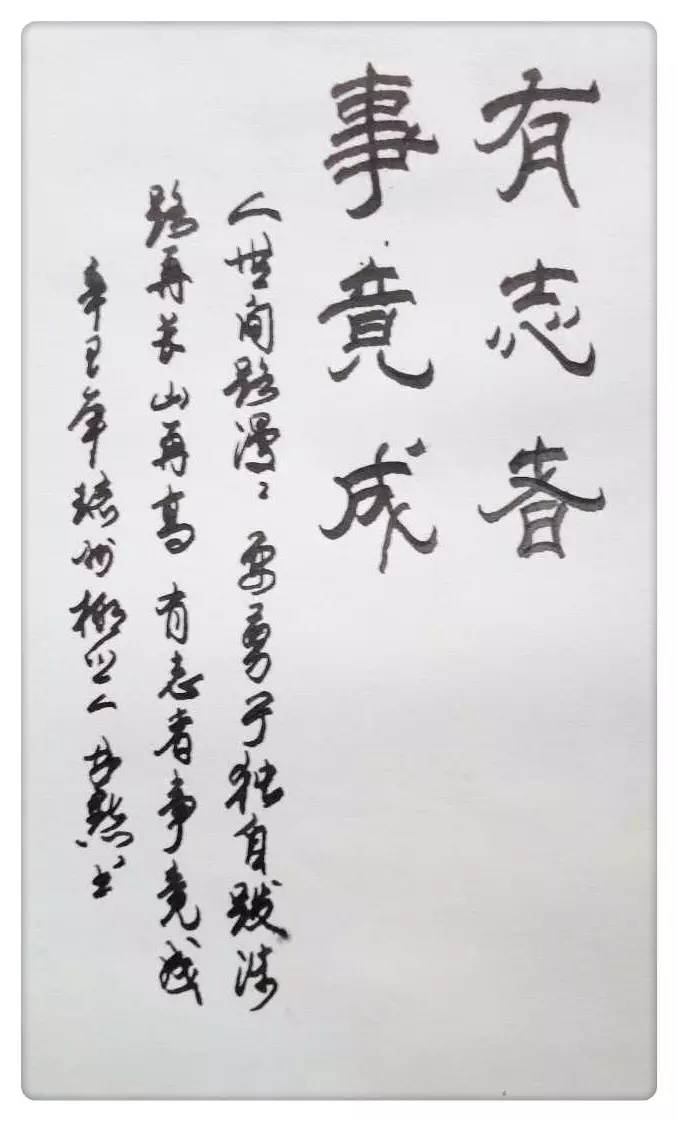 有志者
事竟成
人世间路漫漫 要勇于独自跋涉
路再长山再高 有志者事竟成
辛丑年 人 书